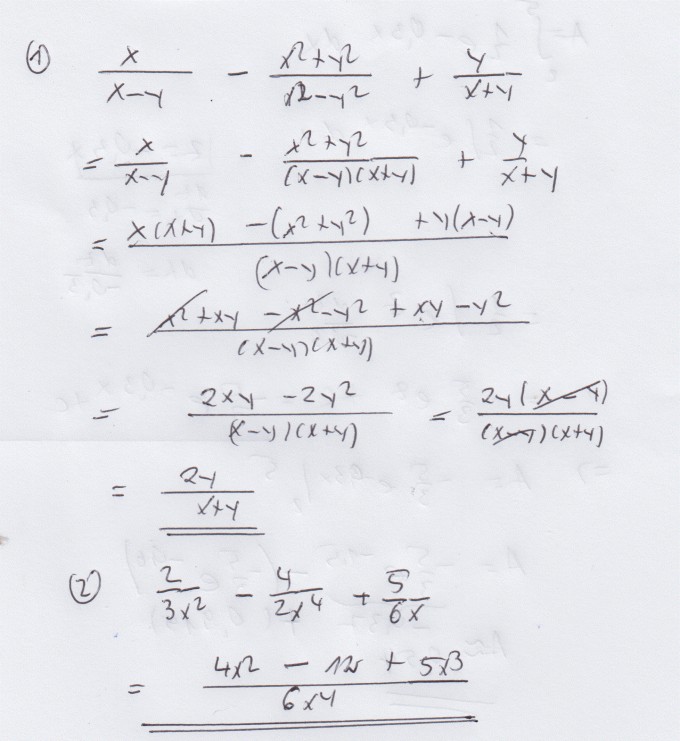 ① x/(x-y) - (x²+y²)/(x²-y²) + y/(x+y)
= x/(x-y) - (x²+y²)/((x-y)(x+y)) + y/(x+y)
= (x(x+y) -(x²+y²) +y(x-y))/((x-y)(x+y))
= (x²+xy -x²-y² +xy -y²)/((x-y)(x+y))
= (2xy -2y²)/((x-y)(x+y)) = (2y(x-y))/((x-y)(x+y))
= 2y/(x+y)
② 2/(3x²) - 4/(2x⁴) + 5/(6x)
= (4x² - 12 + 5x³)/(6x⁴)